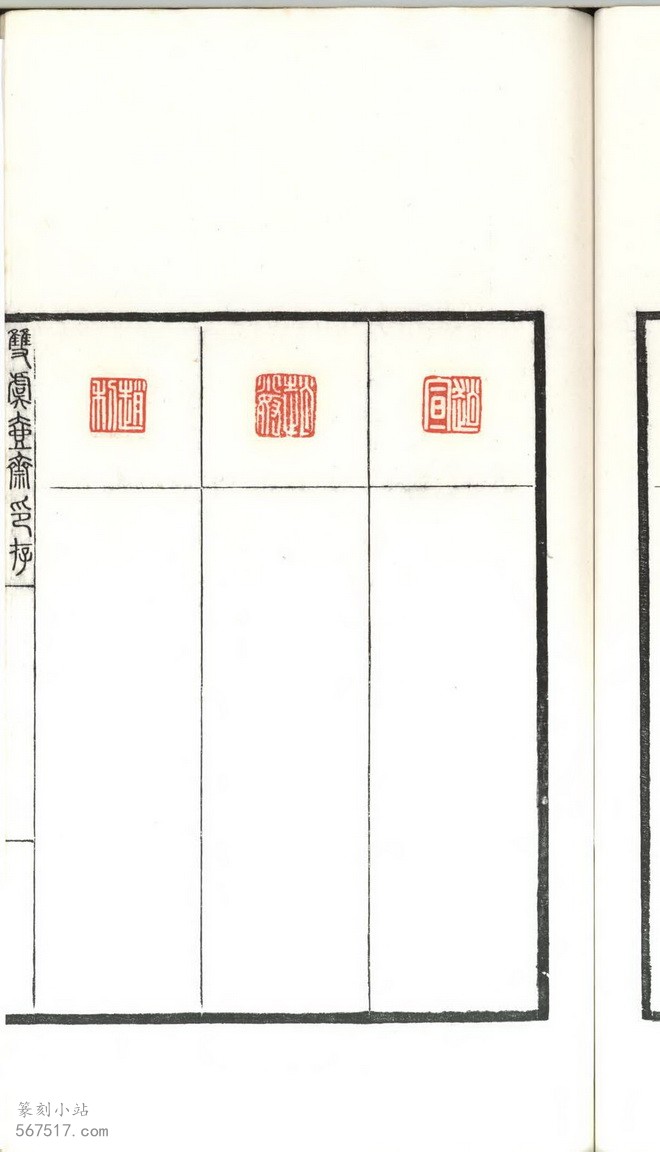 趙宣
趙
趙利
雙虞壺齋印存
篆刻小站
567517.com